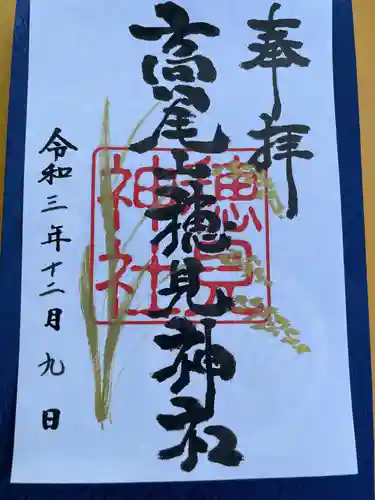 奉拝
高尾山穂見神社
穂見神社
令和三年十二月九日